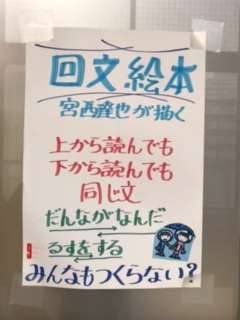 回文絵本
宮西達也が描く
上から読んでも
下から読んでも
同じ文
だんながなんだ
るすをする
みんなもつくらない?